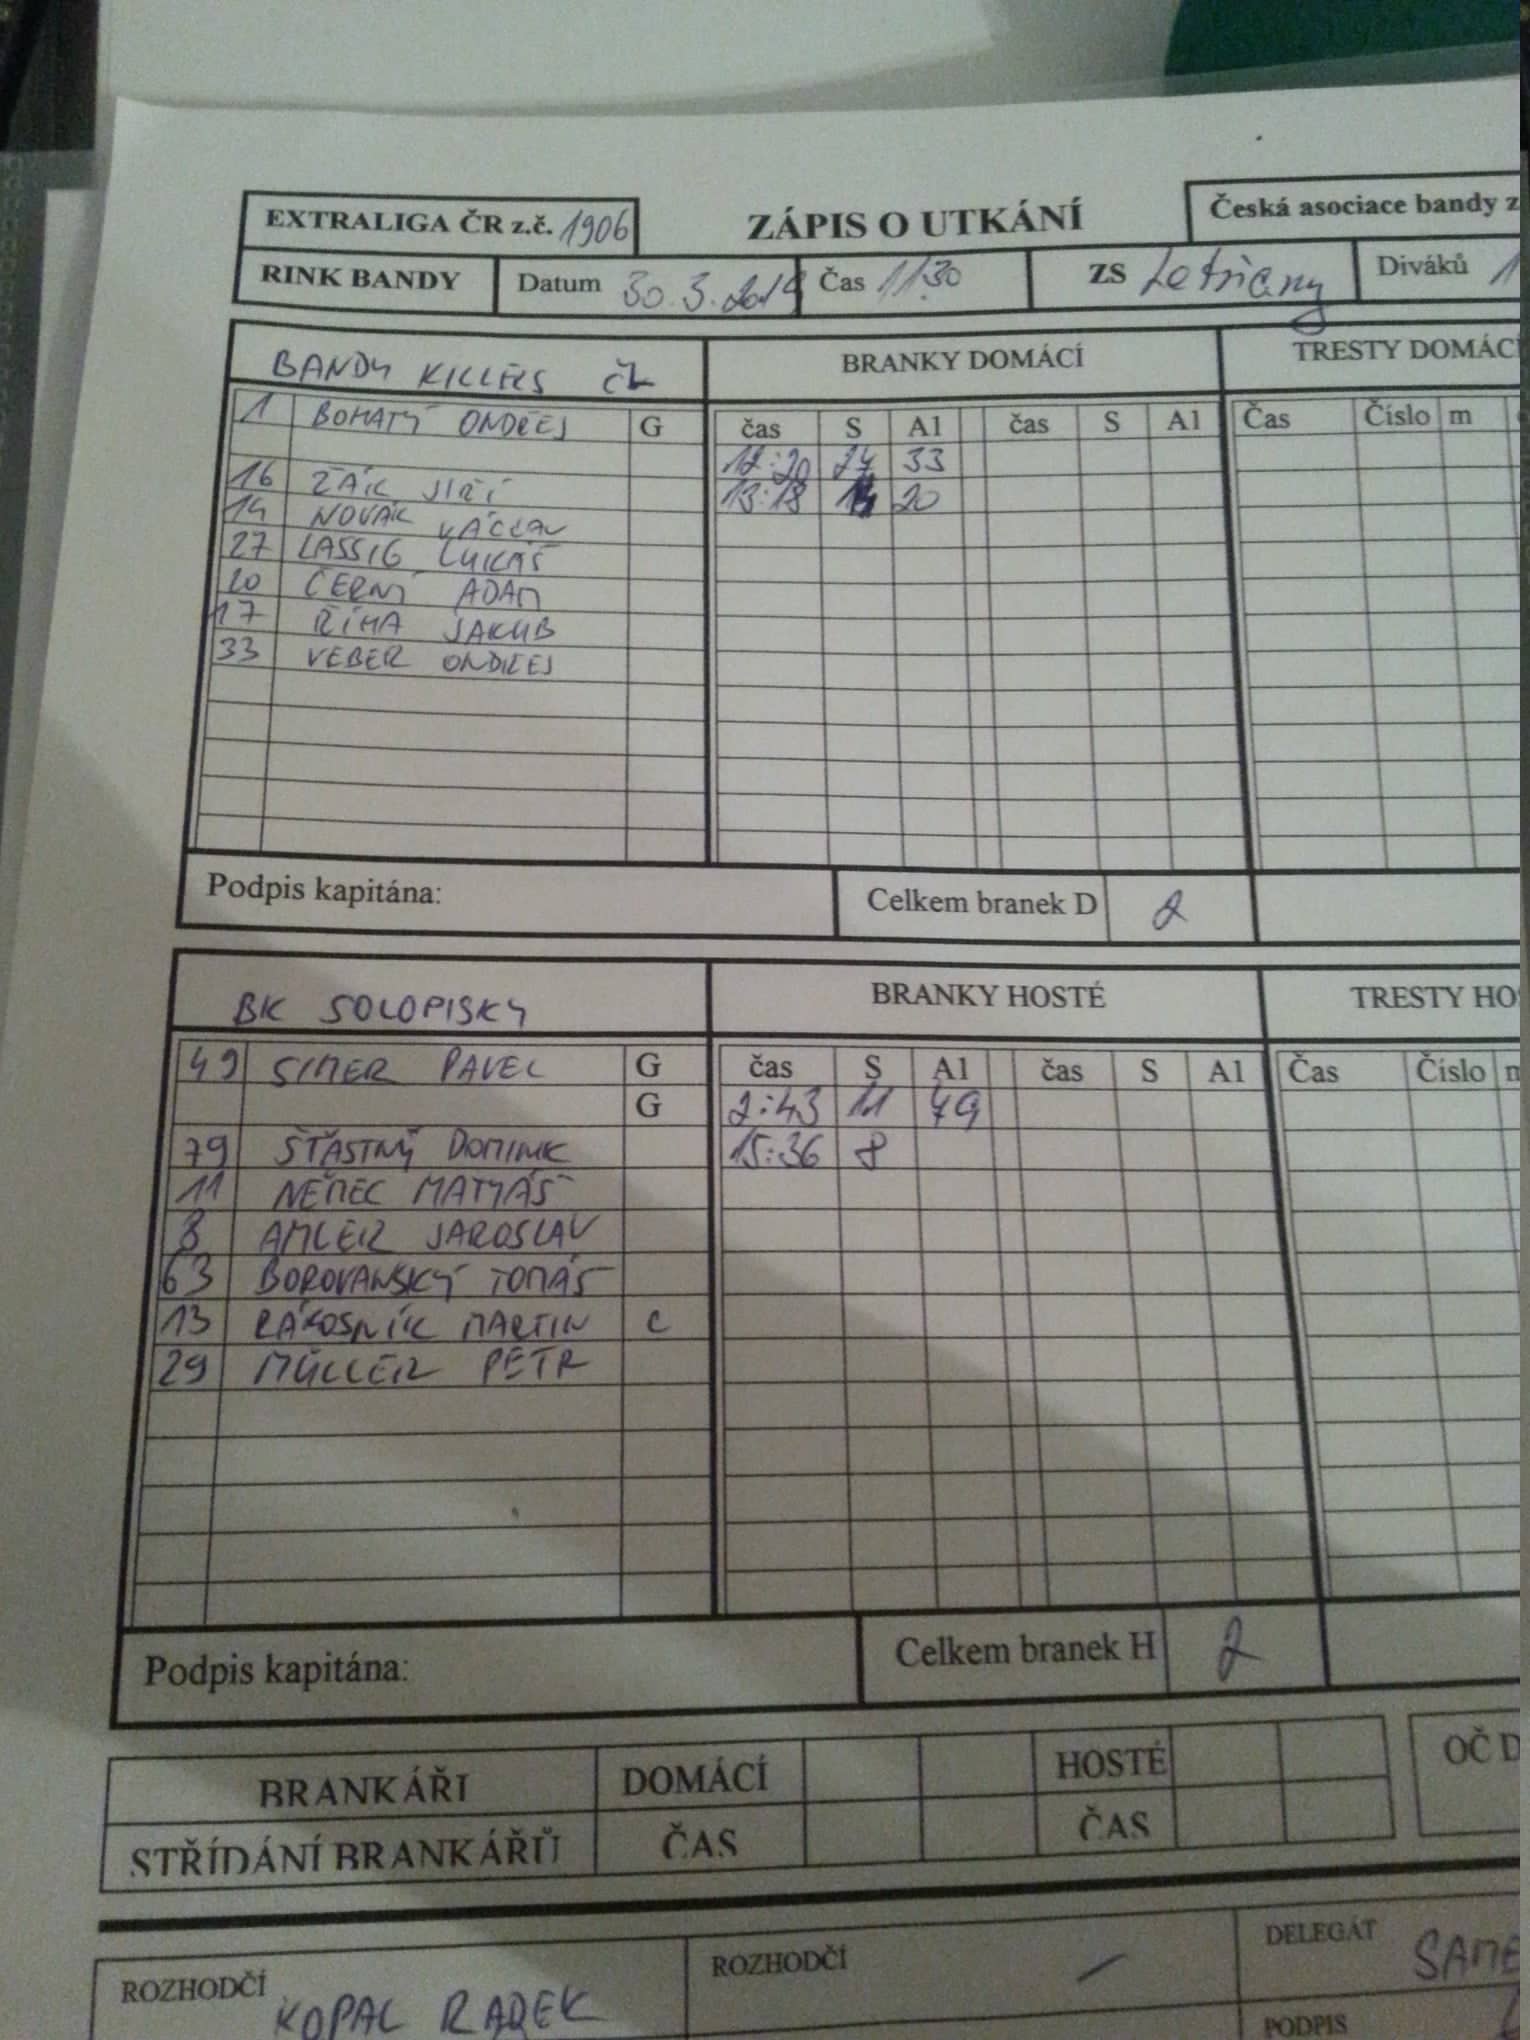 EXTRALIGA ČR z.č. 1906
ZÁPIS O UTKÁNÍ
Česká asociace bandy z
RINK BANDY Datum 30.3.2019 Čas 11:30 ZS Letňany Diváků 1
BANDY KILLERS ČL BRANKY DOMÁCÍ TRESTY DOMÁC
1 BOHATÝ ONDŘEJ G čas S A1 čas S A1 Čas Číslo m
12:20 27 33
16 ŽÁK JIŘÍ 13:18 20
14 NOVÁK VÁCLAV
27 LASSIG LUKÁŠ
20 ČERNÝ ADAM
17 ŘÍHA JAKUB
33 VEBER ONDŘEJ
Podpis kapitána: Celkem branek D 2
BK SOLOPISKY BRANKY HOSTÉ TRESTY HO
49 SIMER PAVEL G čas S A1 čas S A1 Čas Číslo m
G 2:43 11 79
79 ŠŤASTNÝ DOMINIK 15:36 8
11 NĚMEC MATYÁŠ
8 AMLER JAROSLAV
63 BOROVANSKÝ TOMÁŠ
13 RÁKOSNÍK MARTIN C
29 MÜLLER PETR
Podpis kapitána: Celkem branek H 2
BRANKÁŘI DOMÁCÍ HOSTÉ OČ D
STŘÍDÁNÍ BRANKÁŘŮ ČAS ČAS
ROZHODČÍ KOPAL RADEK ROZHODČÍ – DELEGÁT SAME
PODPIS